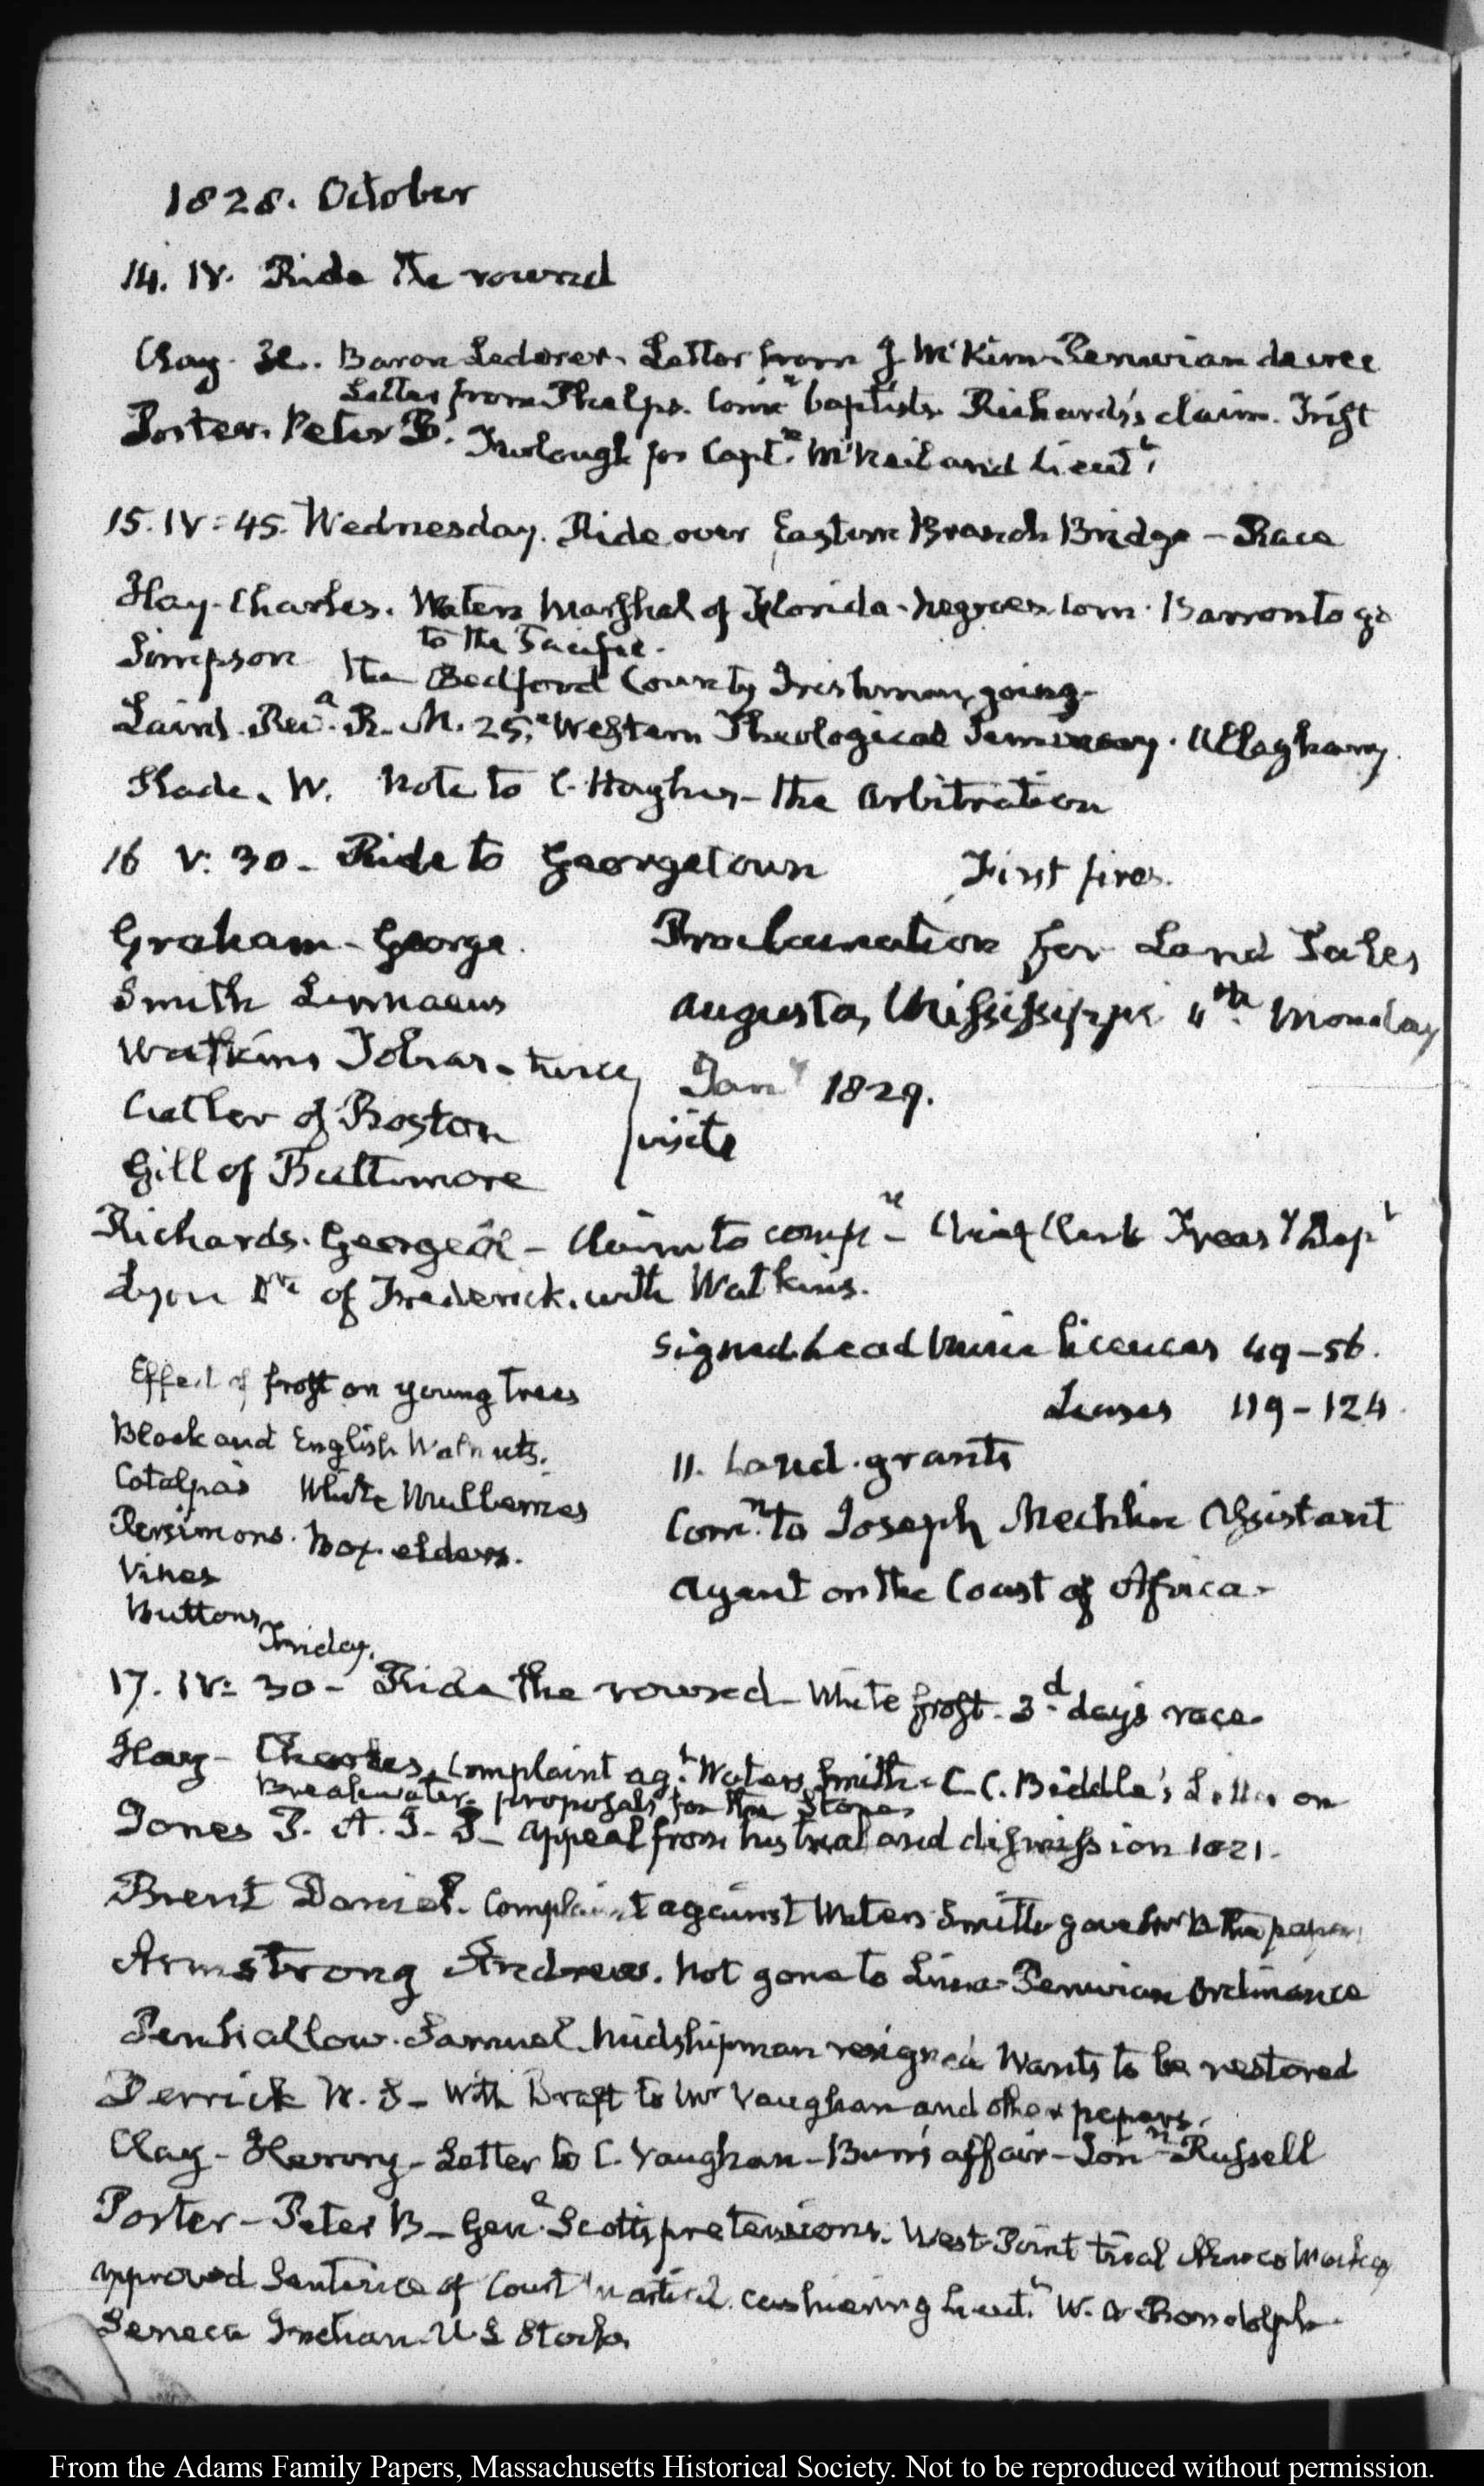 1828. October
14. IV. Ride the round
Clay. H. Baron Lederer. Letter from J McKim. Peruvian decree
Letter from Phelps. Comn baptists. Richards's claim. Trist
Porter. Peter B. Furlough for Capt. McNeil and Lieutt
15. IV:45. Wednesday. Ride over Eastern Branch Bridge - Race
Hay. Charles. Waters Marshal of Florida. Negroes. Com. Barron to go
to the Pacific.
Simpson the Bedford County Irishman, going.
Laird. Revd. R. M. 25. Western Theological Seminary. Alleghany.
Slade. W. Note to C. Hughes - the Arbitration
16 V:30 - Ride to Georgetown First fires.
Graham - George. Proclamation for Land Sales
Smith Linnaeus Augusta, Mississippi 4th Monday
Watkins Tobias - twice Jany 1829.
Cutler of Boston visite
Gill of Baltimore
Richards. George - Claim to compn - Chief Clerk Treasy Dept
Lyon Dr. of Frederick. with Watkins.
Signed Lead Mine licences 49-56.
Effect of frost on young trees
Leases 119-124.
Black and English Walnuts.
11. Land. grants
Catalpas White Mulberries
Comn. to Joseph Mechlin Assistant
Persimons. Box. elders.
Vines
Agent on the Coast of Africa -
Buttons
Friday.
17. IV:30 - Ride the round - White frost. 3d. day's race
Hay - Charles. Complaint agt. Waters Smith - C. C. Biddle's Letter on
Breakwater proposals for the Stones
Jones P. A. J. P - Appeal from his trial and dismission 1821.
Brent Daniel. Complaint against Waters Smith gave Mr B the papers
Armstrong Andrew. Not gone to Lima - Peruvian Ordinance
Penhallow. Samuel. Midshipman resigned Wants to be restored
Derrick W. S - With Draft to Mr Vaughan and other papers.
Clay - Henry - Letter to C. Vaughan - Burn's affair - Jonn Russell
Porter - Peter B - Genl. Scotts pretensions. West Point trial
Approved Sentence of Court martial. cashiering Lieutt. W. B Randolph
Seneca Indian U S Stocks